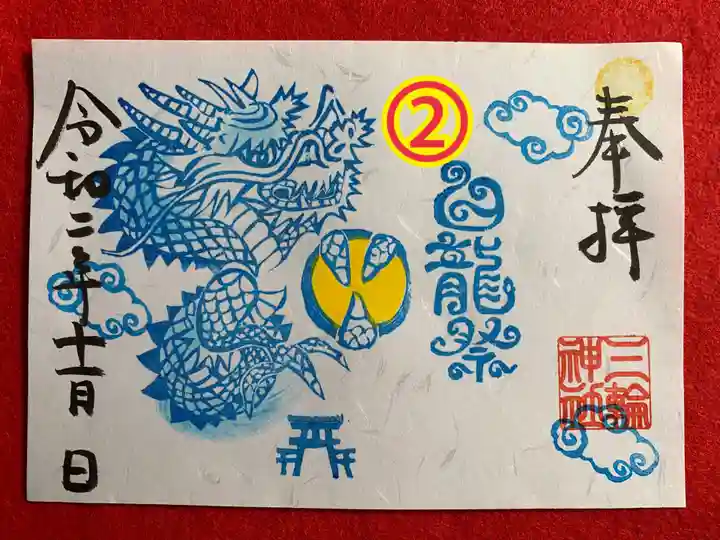 奉拝
三輪神社
②
白龍祭
令和二年十一月 日